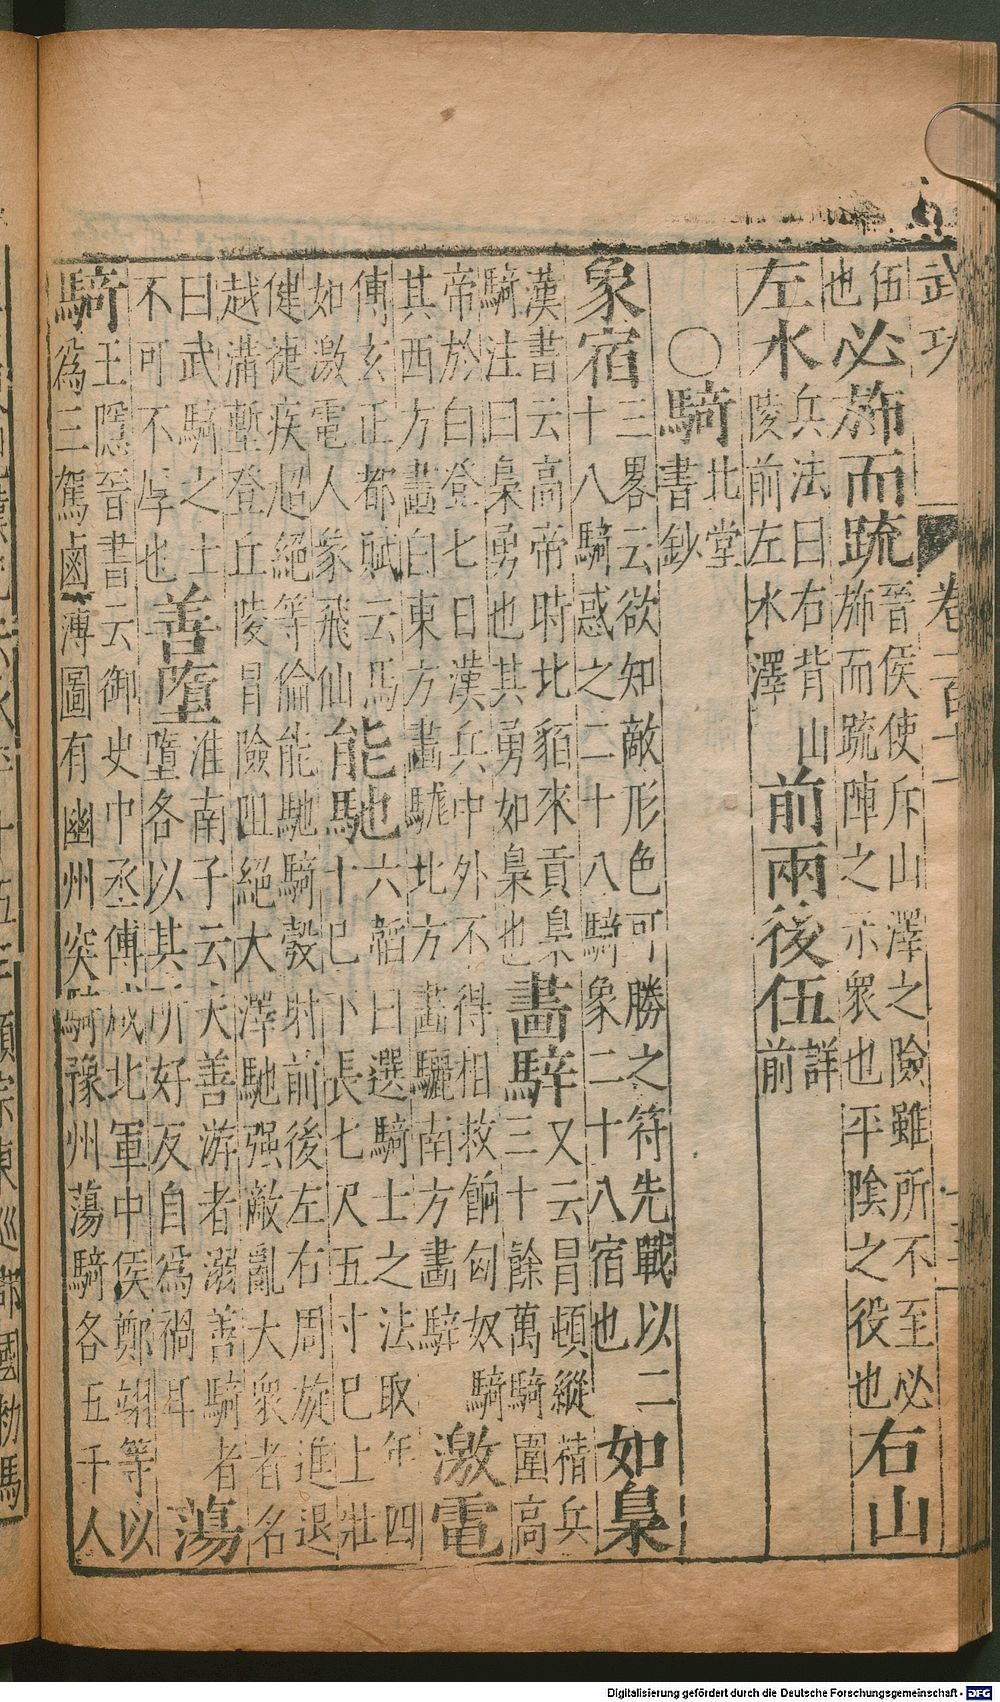 武功
伍
也
必斾而疏
晉侯使斥山澤之險雖所不至必
斾而疏陣之示衆也平陰之役也
右山
左水
兵法曰右背山
陵前左水澤
前兩後伍
詳
前
〇騎
北堂
書鈔
象宿
三畧云欲知敵形色可勝之符先戰以二
十八騎惑之二十八騎象二十八宿也
如梟
漢書云高帝時北貊來貢梟
騎注曰梟勇也其勇如梟也
畫騂
又云冒頓縱精兵
三十餘萬騎圍高
帝於白登七日漢兵中外不得相救餉匈奴騎
其西方畫白東方畫駹北方畫驪南方畫騂
激電
傅玄正都賦云馬
如激電人象飛仙
能馳
六韜曰選騎士之法取年四
十巳下長七尺五寸巳上壯
健徤疾超絕等倫能馳騎彀射前後左右周旋進退
越溝塹登丘陵冒險阻絕大澤馳强敵亂大衆者名
曰武騎之士
不可不厚也
善墮
淮南子云夫善游者溺善騎者
墮各以其所好反自爲禍耳
蕩
騎
王隱晉書云御史中丞傅咸北軍中侯鄭翊等以
爲三駕鹵簿圖有幽州突騎豫州蕩騎各五千人
Digitalisierung gefördert durch die Deutsche Forschungsgemeinschaft - DFG